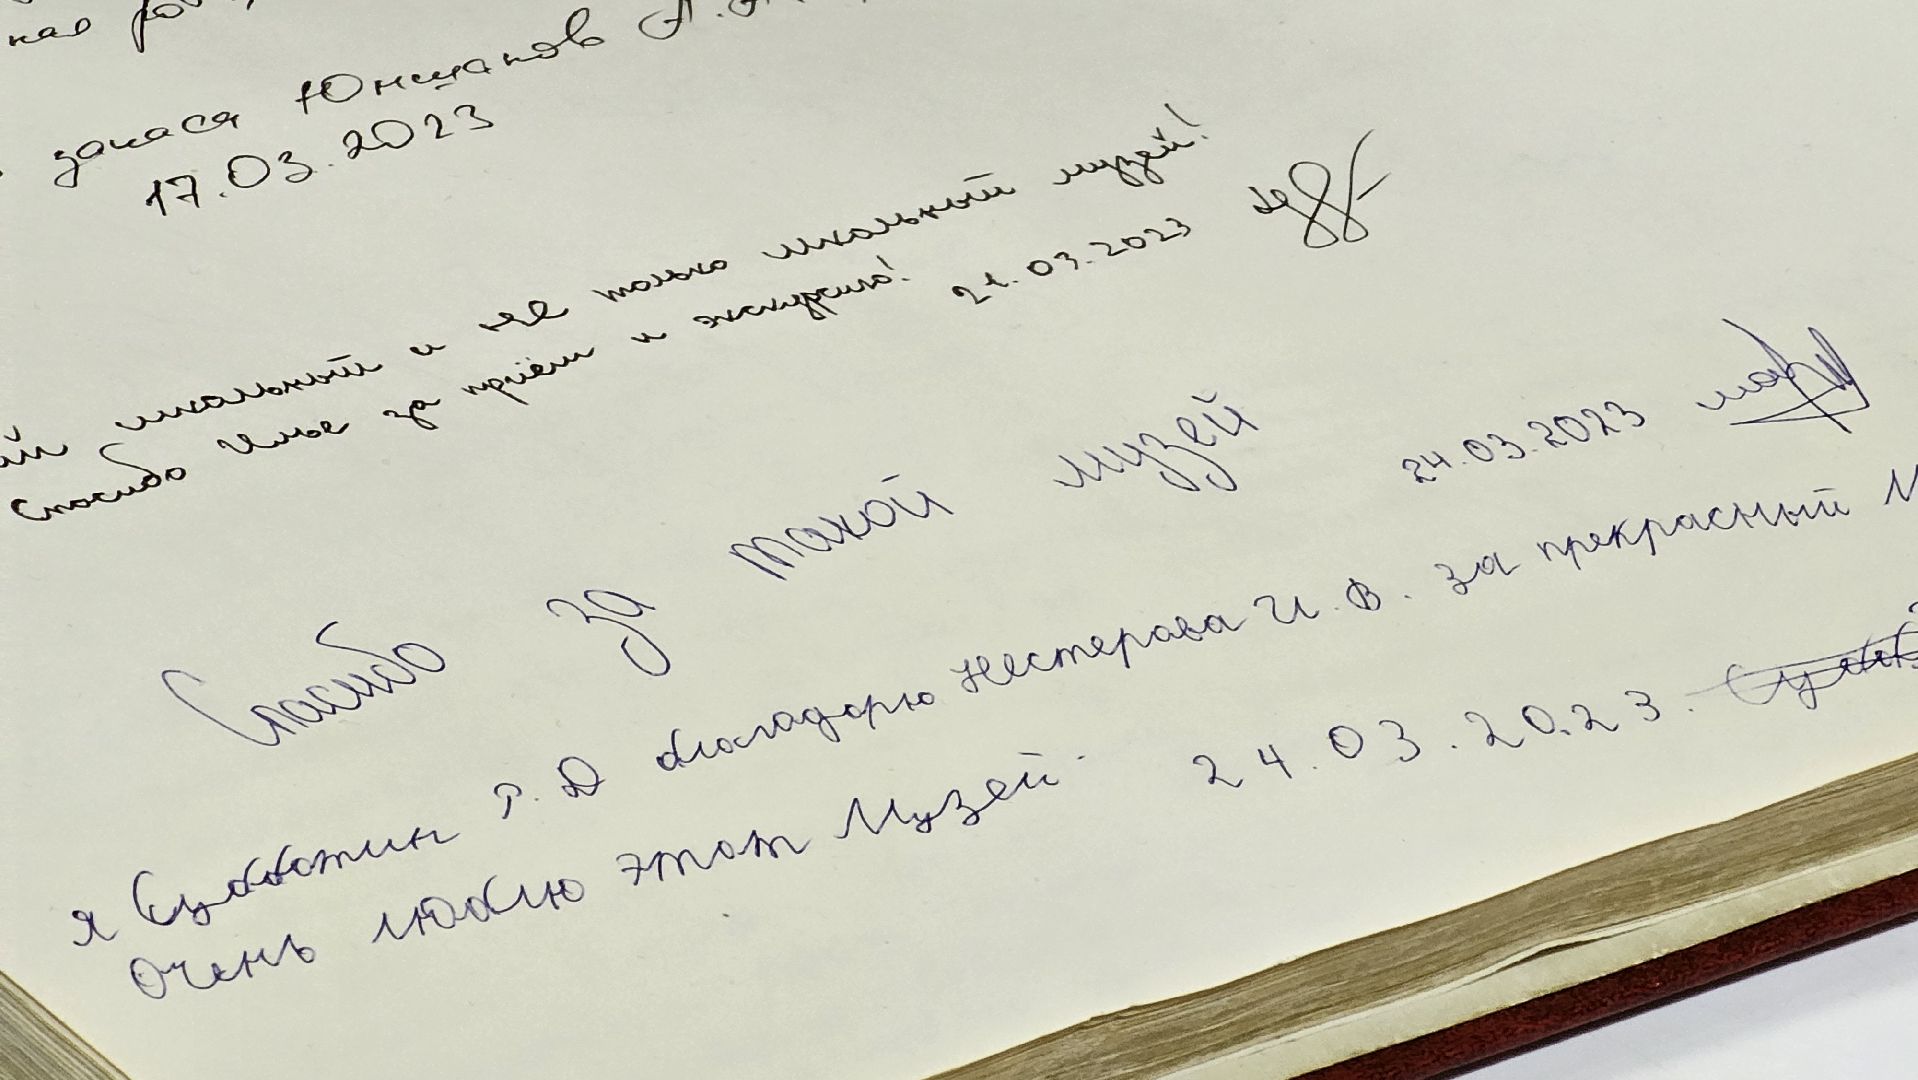 запаса Юнщаков А.А.
17.03.2023
школьный и не только школьный музей!
Спасибо Илье за приём и экскурсию! 21.03.2023
Спасибо за такой музей
24.03.2023
я Субботин Г.Д благодарю Нестерова И.В. за прекрасный М
Очень люблю этот Музей. 24.03.2023.